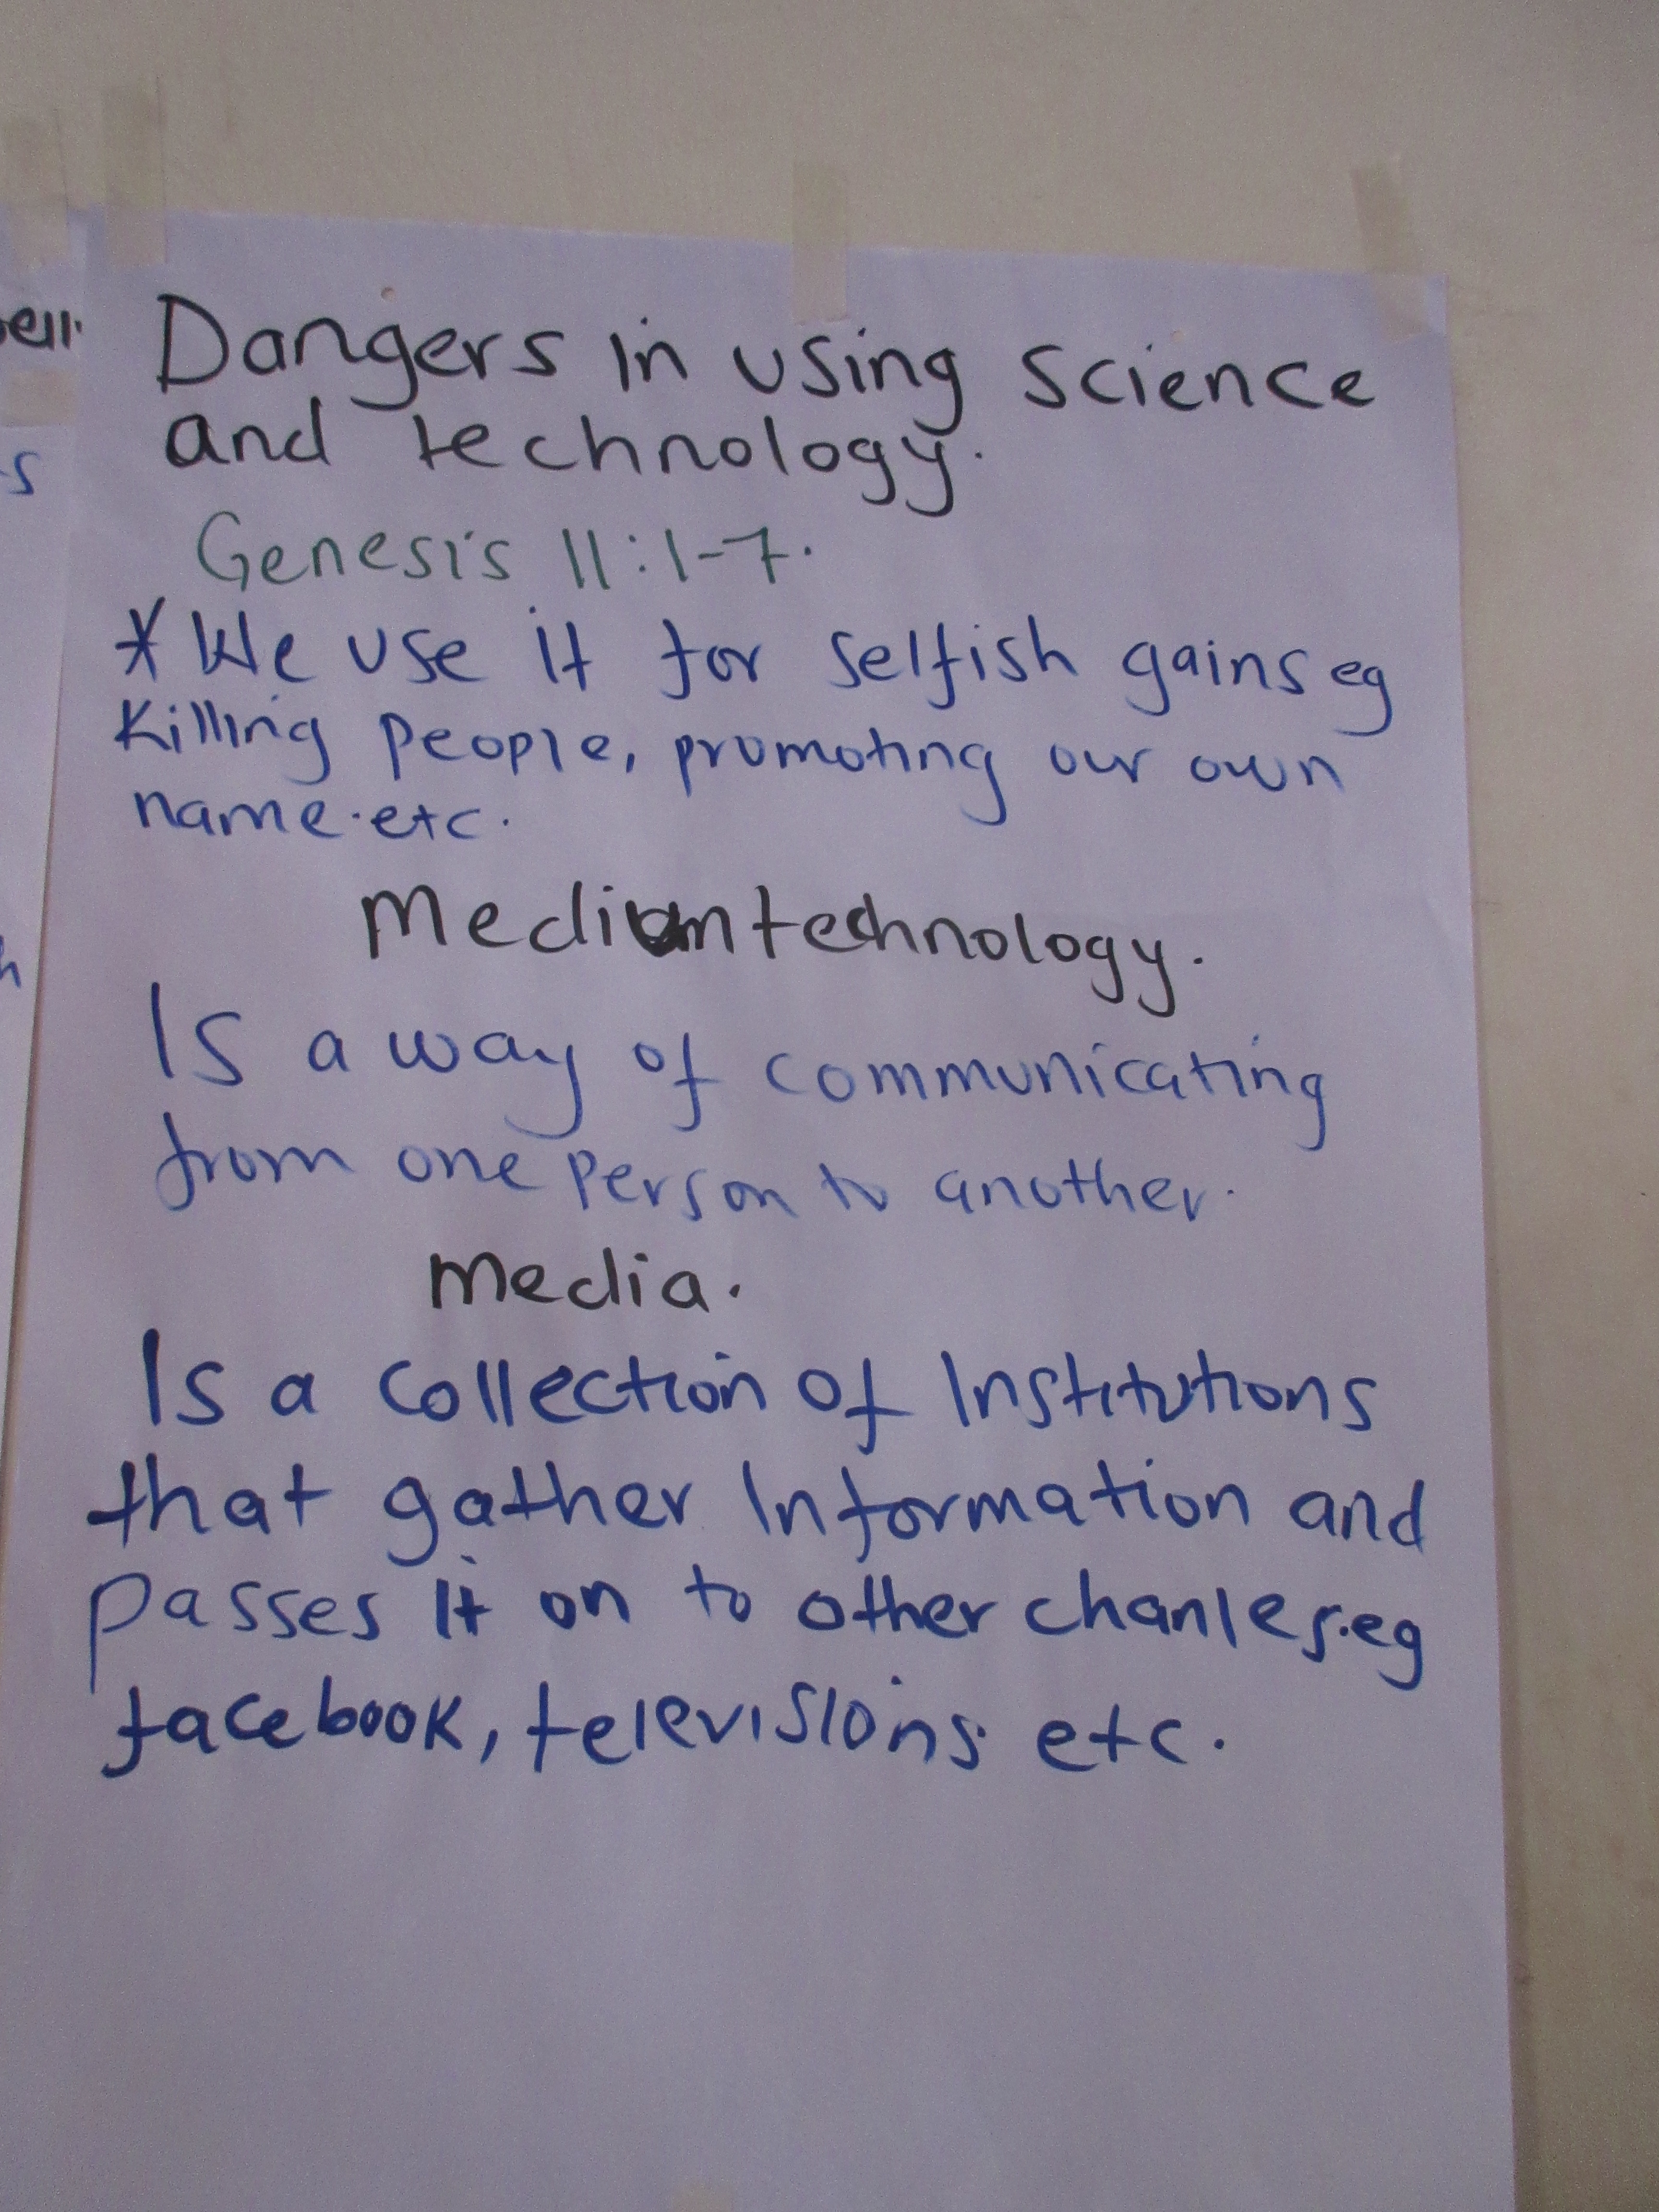 Dangers in using science
and technology.
Genesis 11:1-7.
* We use it for selfish gains eg
Killing people, promoting our own
name.etc.
Medium technology.
Is a way of communicating
from one person to another.
Media.
Is a collection of Institutions
that gather Information and
passes it on to other chanles.eg
facebook, televisions etc.